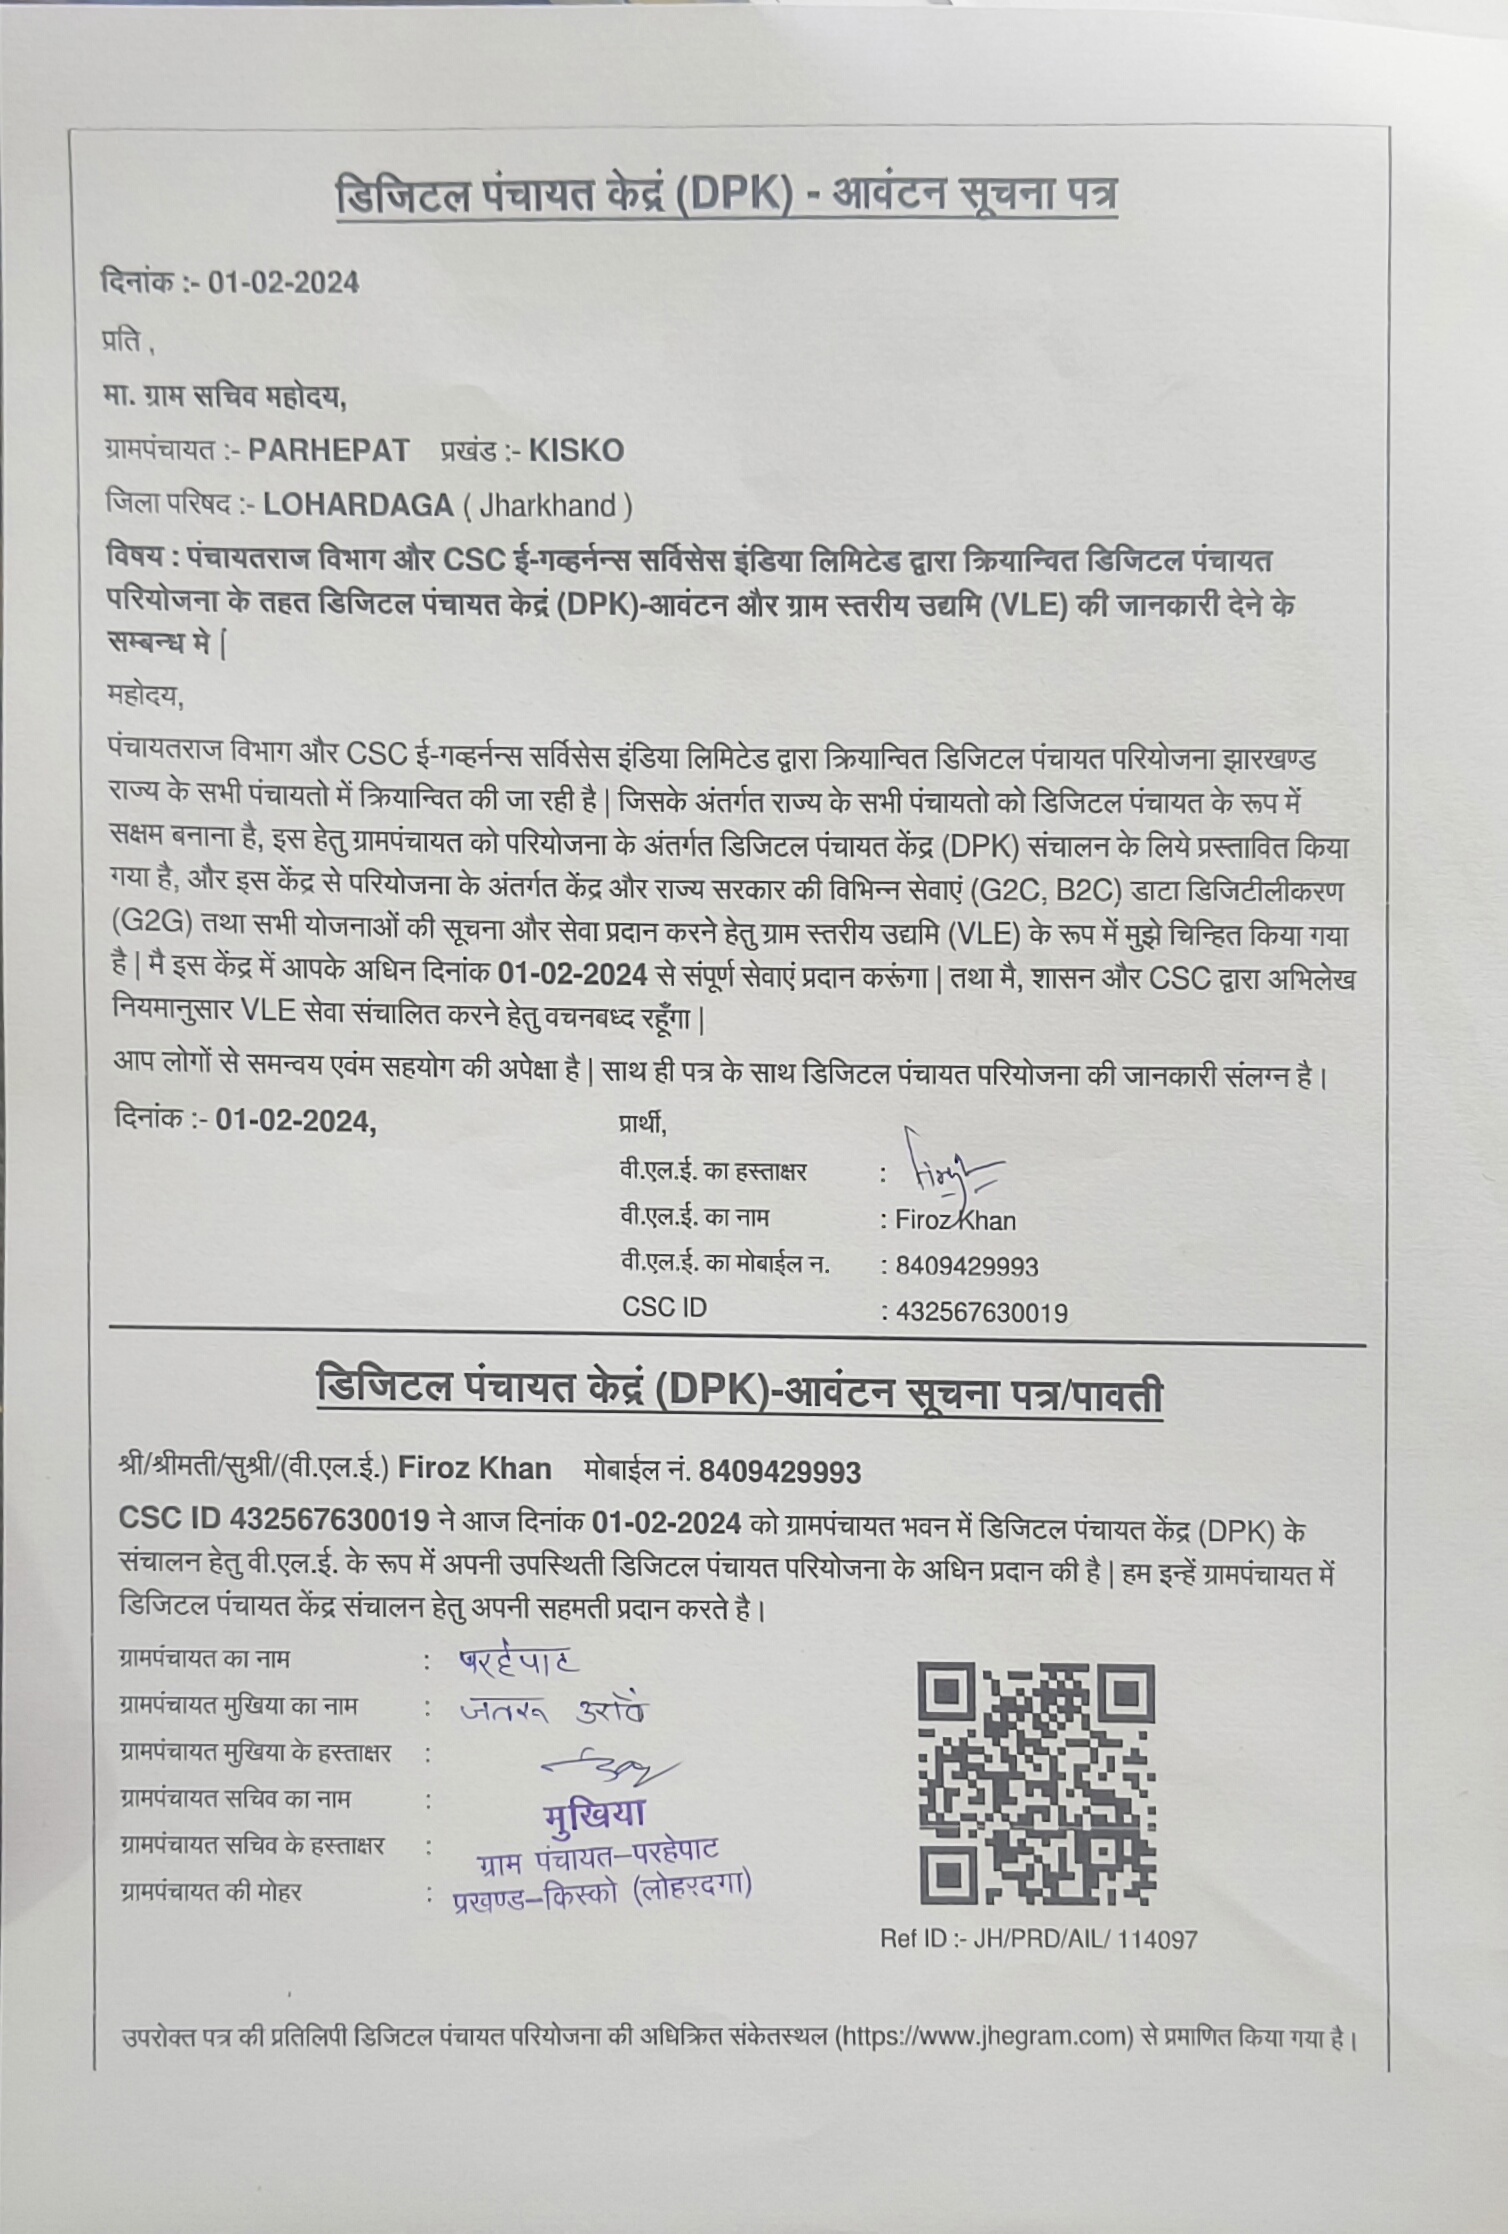 डिजिटल पंचायत केद्रं (DPK) - आवंटन सूचना पत्र
दिनांक :- 01-02-2024
प्रति ,
मा. ग्राम सचिव महोदय,
ग्रामपंचायत :- PARHEPAT प्रखंड :- KISKO
जिला परिषद :- LOHARDAGA ( Jharkhand )
विषय : पंचायतराज विभाग और CSC ई-गव्हर्नन्स सर्विसेस इंडिया लिमिटेड द्वारा क्रियान्वित डिजिटल पंचायत
परियोजना के तहत डिजिटल पंचायत केद्रं (DPK)-आवंटन और ग्राम स्तरीय उद्यमि (VLE) की जानकारी देने के
सम्बन्ध मे |
महोदय,
पंचायतराज विभाग और CSC ई-गव्हर्नन्स सर्विसेस इंडिया लिमिटेड द्वारा क्रियान्वित डिजिटल पंचायत परियोजना झारखण्ड
राज्य के सभी पंचायतो में क्रियान्वित की जा रही है | जिसके अंतर्गत राज्य के सभी पंचायतो को डिजिटल पंचायत के रूप में
सक्षम बनाना है, इस हेतु ग्रामपंचायत को परियोजना के अंतर्गत डिजिटल पंचायत केंद्र (DPK) संचालन के लिये प्रस्तावित किया
गया है, और इस केंद्र से परियोजना के अंतर्गत केंद्र और राज्य सरकार की विभिन्न सेवाएं (G2C, B2C) डाटा डिजिटीलीकरण
(G2G) तथा सभी योजनाओं की सूचना और सेवा प्रदान करने हेतु ग्राम स्तरीय उद्यमि (VLE) के रूप में मुझे चिन्हित किया गया
है | मै इस केंद्र में आपके अधिन दिनांक 01-02-2024 से संपूर्ण सेवाएं प्रदान करूंगा | तथा मै, शासन और CSC द्वारा अभिलेख
नियमानुसार VLE सेवा संचालित करने हेतु वचनबध्द रहूँगा |
आप लोगों से समन्वय एवंम सहयोग की अपेक्षा है | साथ ही पत्र के साथ डिजिटल पंचायत परियोजना की जानकारी संलग्न है।
दिनांक :- 01-02-2024, प्रार्थी,
वी.एल.ई. का हस्ताक्षर :
वी.एल.ई. का नाम : Firoz Khan
वी.एल.ई. का मोबाईल न. : 8409429993
CSC ID : 432567630019
डिजिटल पंचायत केद्रं (DPK)-आवंटन सूचना पत्र/पावती
श्री/श्रीमती/सुश्री/(वी.एल.ई.) Firoz Khan मोबाईल नं. 8409429993
CSC ID 432567630019 ने आज दिनांक 01-02-2024 को ग्रामपंचायत भवन में डिजिटल पंचायत केंद्र (DPK) के
संचालन हेतु वी.एल.ई. के रूप में अपनी उपस्थिती डिजिटल पंचायत परियोजना के अधिन प्रदान की है | हम इन्हें ग्रामपंचायत में
डिजिटल पंचायत केंद्र संचालन हेतु अपनी सहमती प्रदान करते है।
ग्रामपंचायत का नाम : परहेपाट
ग्रामपंचायत मुखिया का नाम : जतरू उराँव
ग्रामपंचायत मुखिया के हस्ताक्षर :
ग्रामपंचायत सचिव का नाम :
मुखिया
ग्रामपंचायत सचिव के हस्ताक्षर :
ग्राम पंचायत–परहेपाट
ग्रामपंचायत की मोहर :
प्रखण्ड–किस्को (लोहरदगा)
Ref ID :- JH/PRD/AIL/ 114097
उपरोक्त पत्र की प्रतिलिपी डिजिटल पंचायत परियोजना की अधिक्रित संकेतस्थल (https://www.jhegram.com) से प्रमाणित किया गया है।